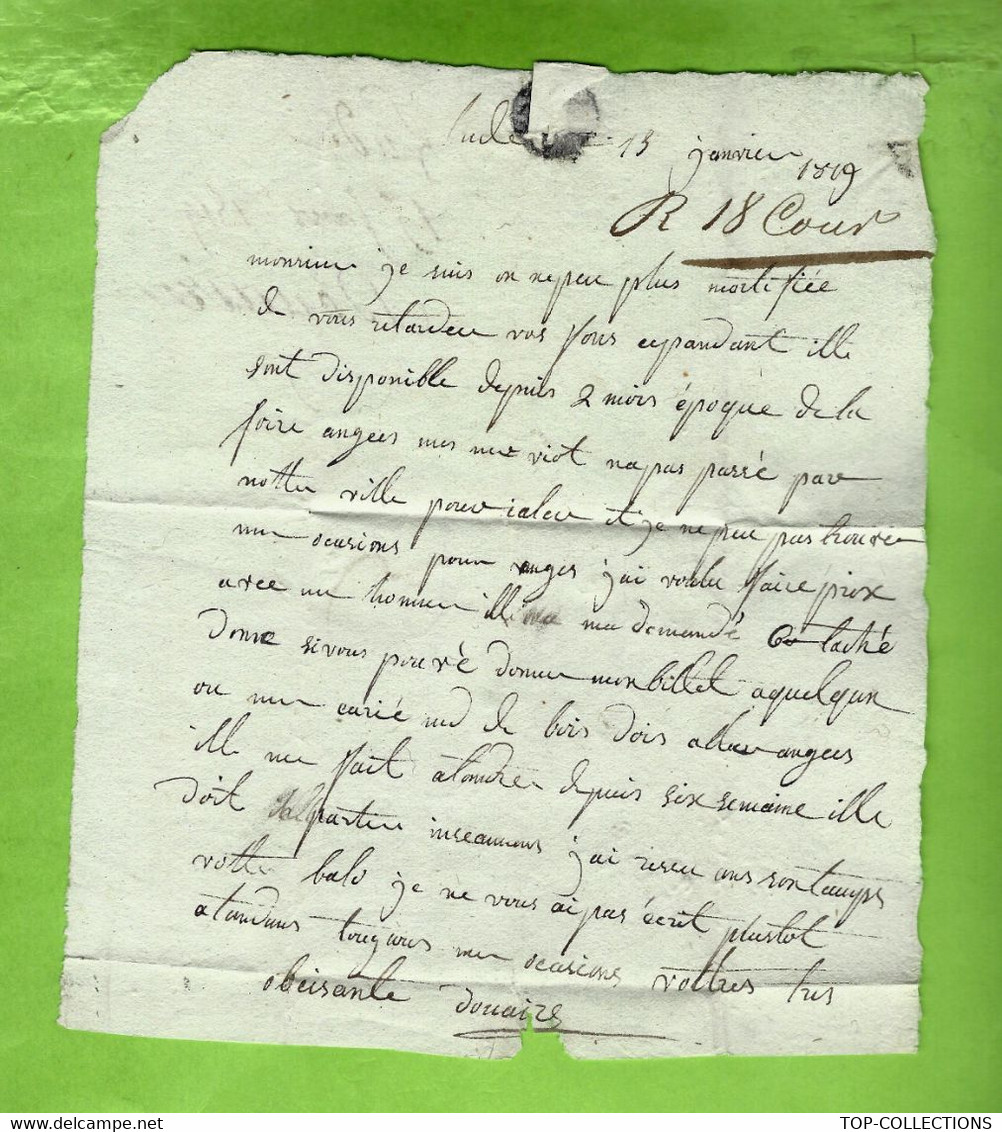 lude 15 janvier 1819
R 18 Cour
monsieur je suis on ne peu plus mortifiée
de vous retarder vos fons cepandant ille
sont disponible depuis 2 mois époque de la
foire angers mes mr viot na pas passé par
nottre ville pour i aler et je ne peu pas trouver
une ocasions pour anges j'ai voulu faire prix
avec un homme ille ma demandé lachté
donc si vous pouvé donner mon billet a quelqun
ou mr carié md de bois dois aller angees
ille me fait atandre depuis six semaine ille
doit partir inseamens j'ai reseu ans son tamps
votte balo je ne vous ai pas écrit plustot
atandans tougours une ocasions vottres tres
obeisante douaire
TOP-COLLECTIONS